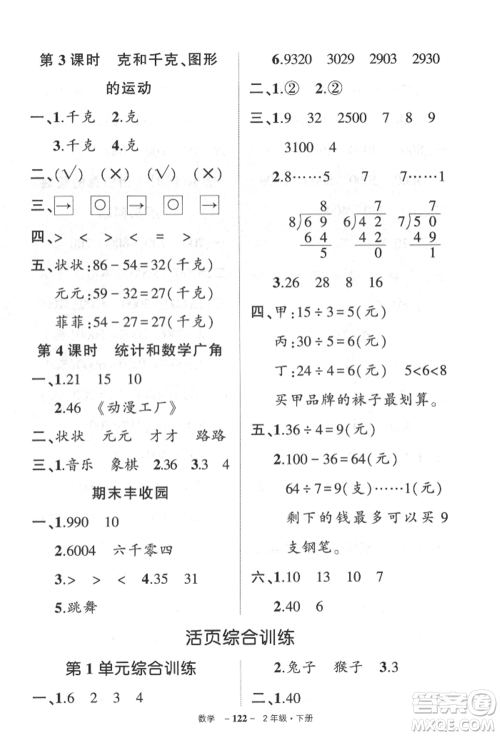 第3课时 克和千克、图形
的运动
一、1.千克 2.克
3.千克 4.克
二、(√) (×) (√) (×)
三、→ ○ → ○ →
四、> > < < = >
五、状状:86-54=32(千克)
元元:59-32=27(千克)
菲菲:54-27=27(千克)
第4课时 统计和数学广角
一、1.21 15 10
2.46 《动漫工厂》
二、状状 元元 才才 路路
三、1.音乐 象棋 2.36 3.3
期末丰收园
一、1.990 10
2.6004 六千零四
3.> > < 4.35 31
5.跳舞
6.9320 3029 2903 2930
二、1.② 2.②
三、1.9 32 2500 7 8 9
3100 4
2.8……5 7 7……1
8 7 7
8)69 6)42 7)50
64 42 49
5 0 1
3.26 28 8
四、甲:15÷3=5(元)
丙:30÷5=6(元)
丁:16÷2=8(元) 5<6<8
买甲品牌的袜子最划算。
五、1.36÷4=9(元)
2.100-36=64(元)
64÷7=9(支)……1(元)
剩下的钱最多可以买9
支钢笔。
六、1.10 13 10 7
2.40 6
活页综合训练
第1单元综合训练
一、1.6 2 3 4
2.兔子 猴子 3.3
二、1.40
数学 -122- 2年级·下册